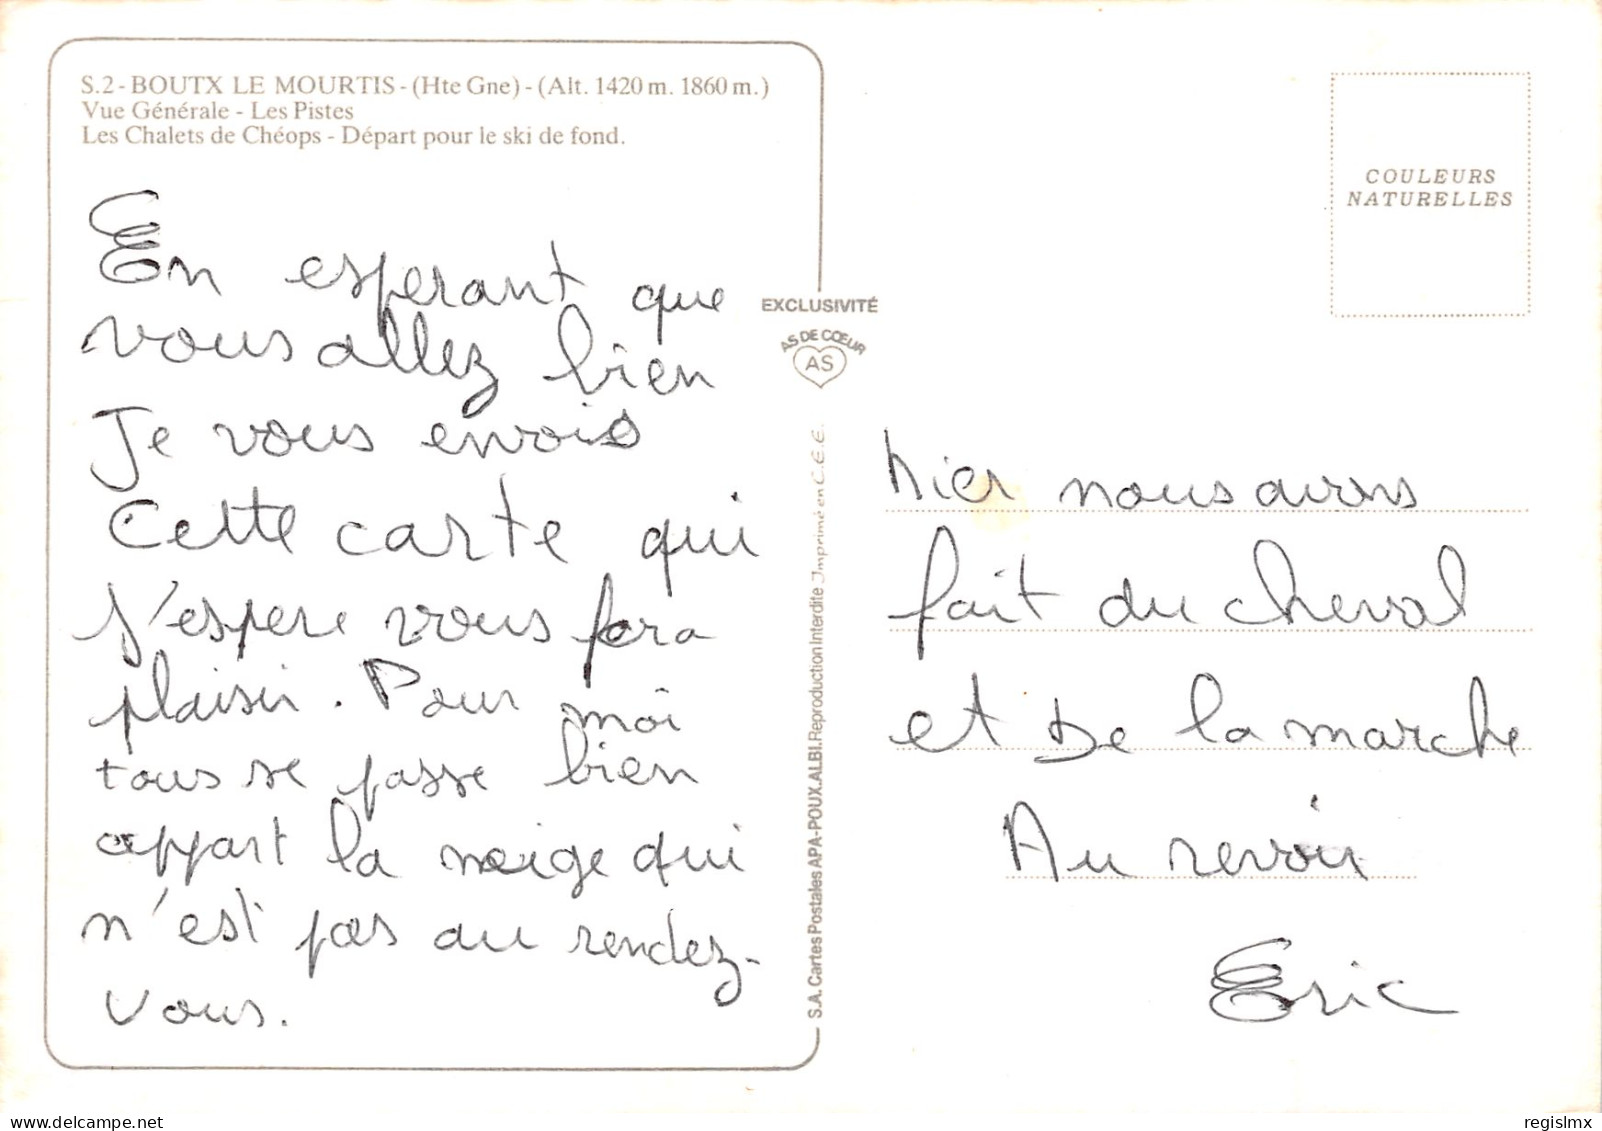 S.2 - BOUTX LE MOURTIS - (Hte Gne) - (Alt. 1420 m. 1860 m.)
Vue Générale - Les Pistes
Les Chalets de Chéops - Départ pour le ski de fond.
En esperant que
vous allez bien
Je vous envois
Cette carte qui
j'espere vous fera
plaisir. Pour moi
tous se passe bien
appart la neige qui
n'est pas au rendez-
vous.
EXCLUSIVITÉ
AS DE CŒUR
AS
S.A. Cartes Postales APA-POUX. ALBI. Reproduction Interdite Imprimé en C.E.E.
COULEURS
NATURELLES
hier nous avons
fait du cheval
et De la marche
Au revoir
Eric
regislmx